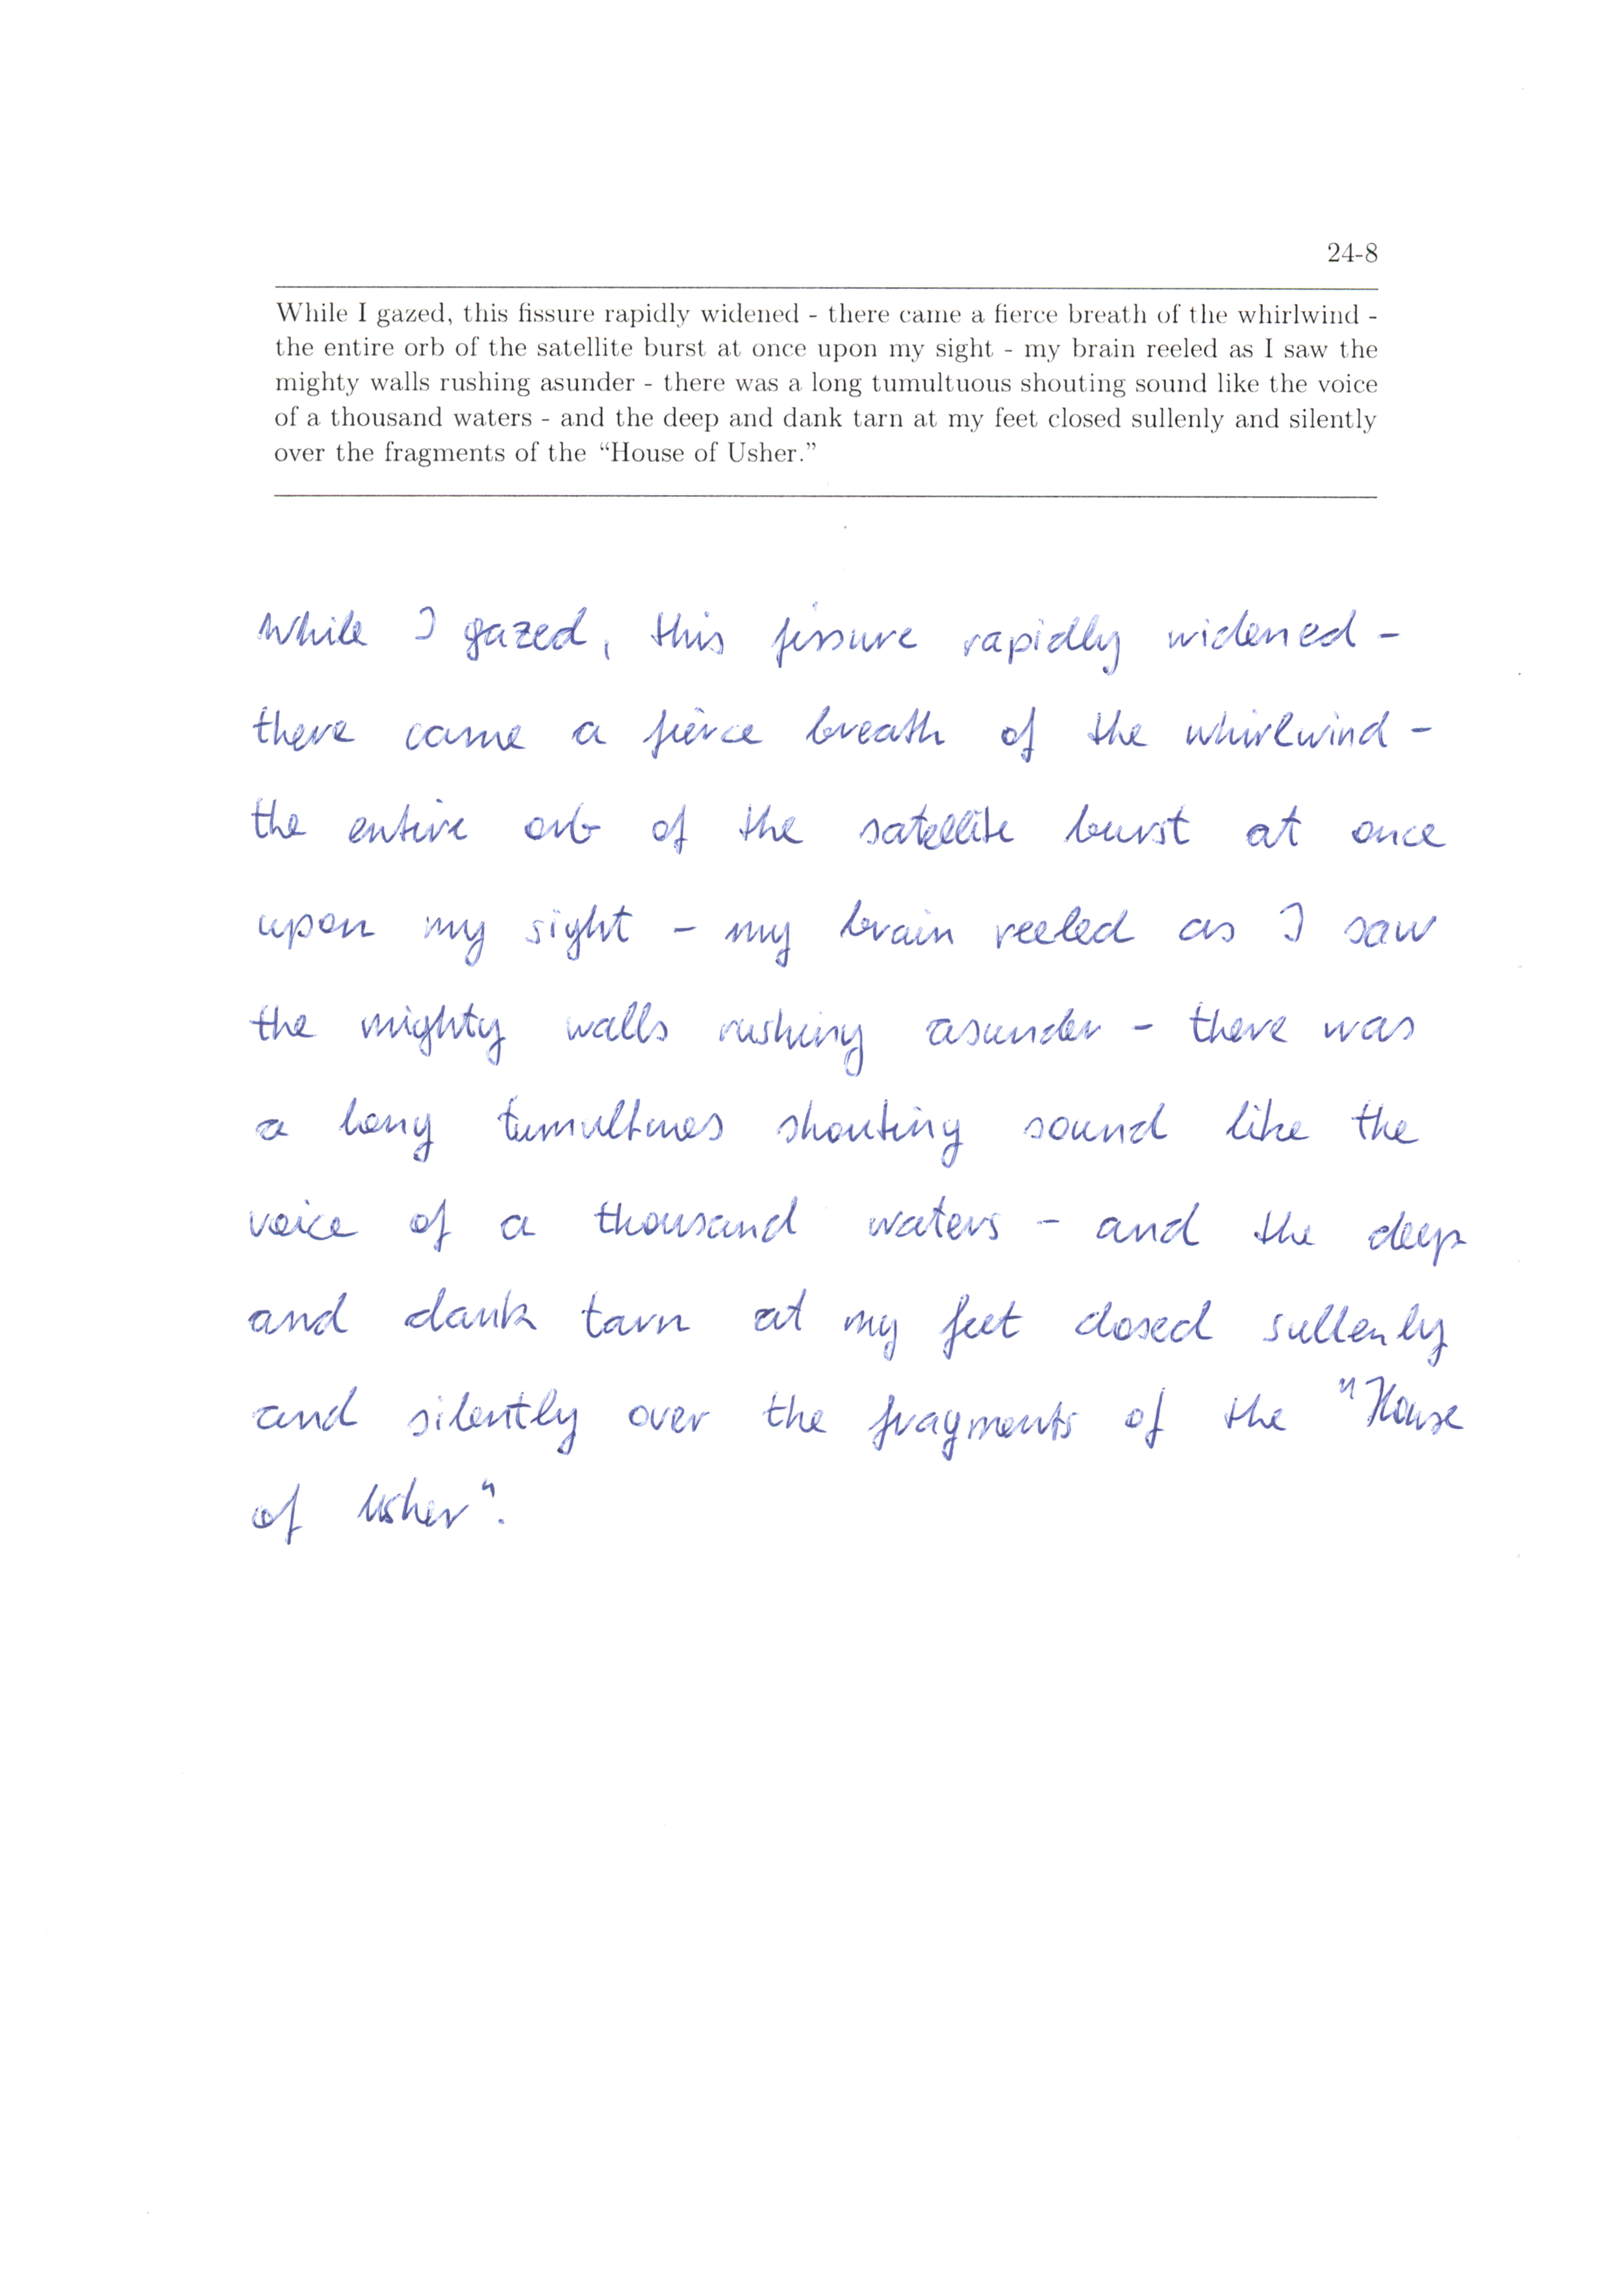 24-8
While I gazed, this fissure rapidly widened - there came a fierce breath of the whirlwind -
the entire orb of the satellite burst at once upon my sight - my brain reeled as I saw the
mighty walls rushing asunder - there was a long tumultuous shouting sound like the voice
of a thousand waters - and the deep and dank tarn at my feet closed sullenly and silently
over the fragments of the “House of Usher.”
While I gazed, this fissure rapidly widened -
there came a fierce breath of the whirlwind -
the entire orb of the satellite burst at once
upon my sight - my brain reeled as I saw
the mighty walls rushing asunder - there was
a long tumultuos shouting sound like the
voice of a thousand waters - and the deep
and dank tarn at my feet closed sullenly
and silently over the fragments of the "House
of Usher".